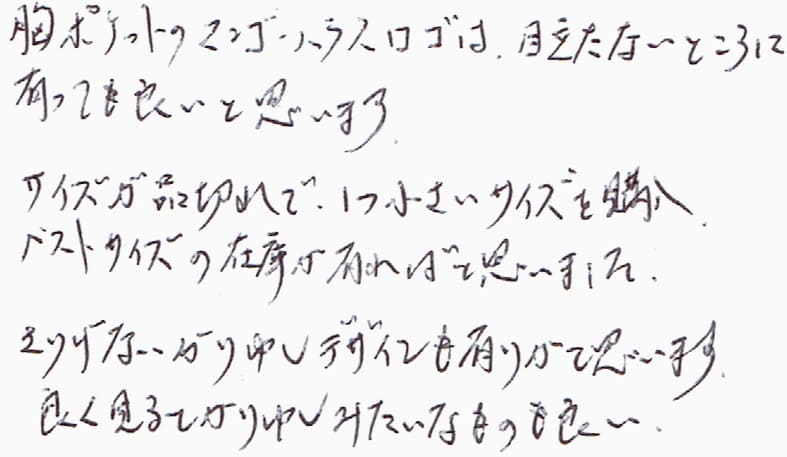 胸ポケットのマンゴーハウスロゴは、目立たないところに
有っても良いと思います。
サイズが品切れで、1つ小さいサイズを購入。
ベストサイズの在庫が有ればと思いました。
さりげないかりゆしデザインも有りかと思います。
良く見るとかりゆしみたいなものも良い。